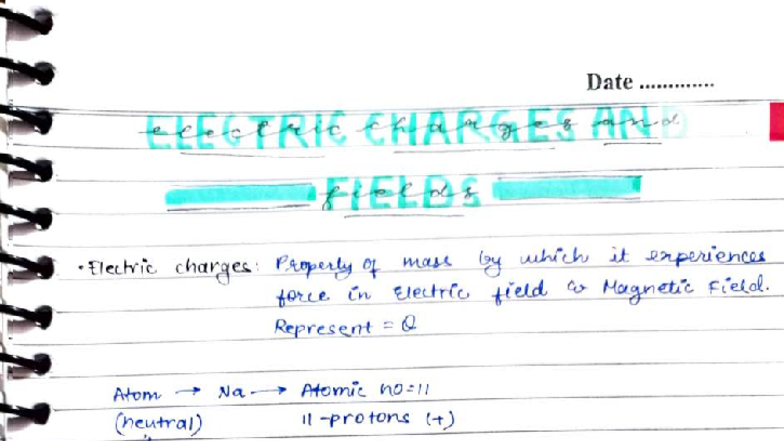 Date .............
ELECTRIC CHARGES AND
FIELDS
• Electric charges: Property of mass by which it experiences
force in Electric field & Magnetic Field.
Represent = Q
Atom → Na → Atomic no=11
(neutral) 11-protons (+)